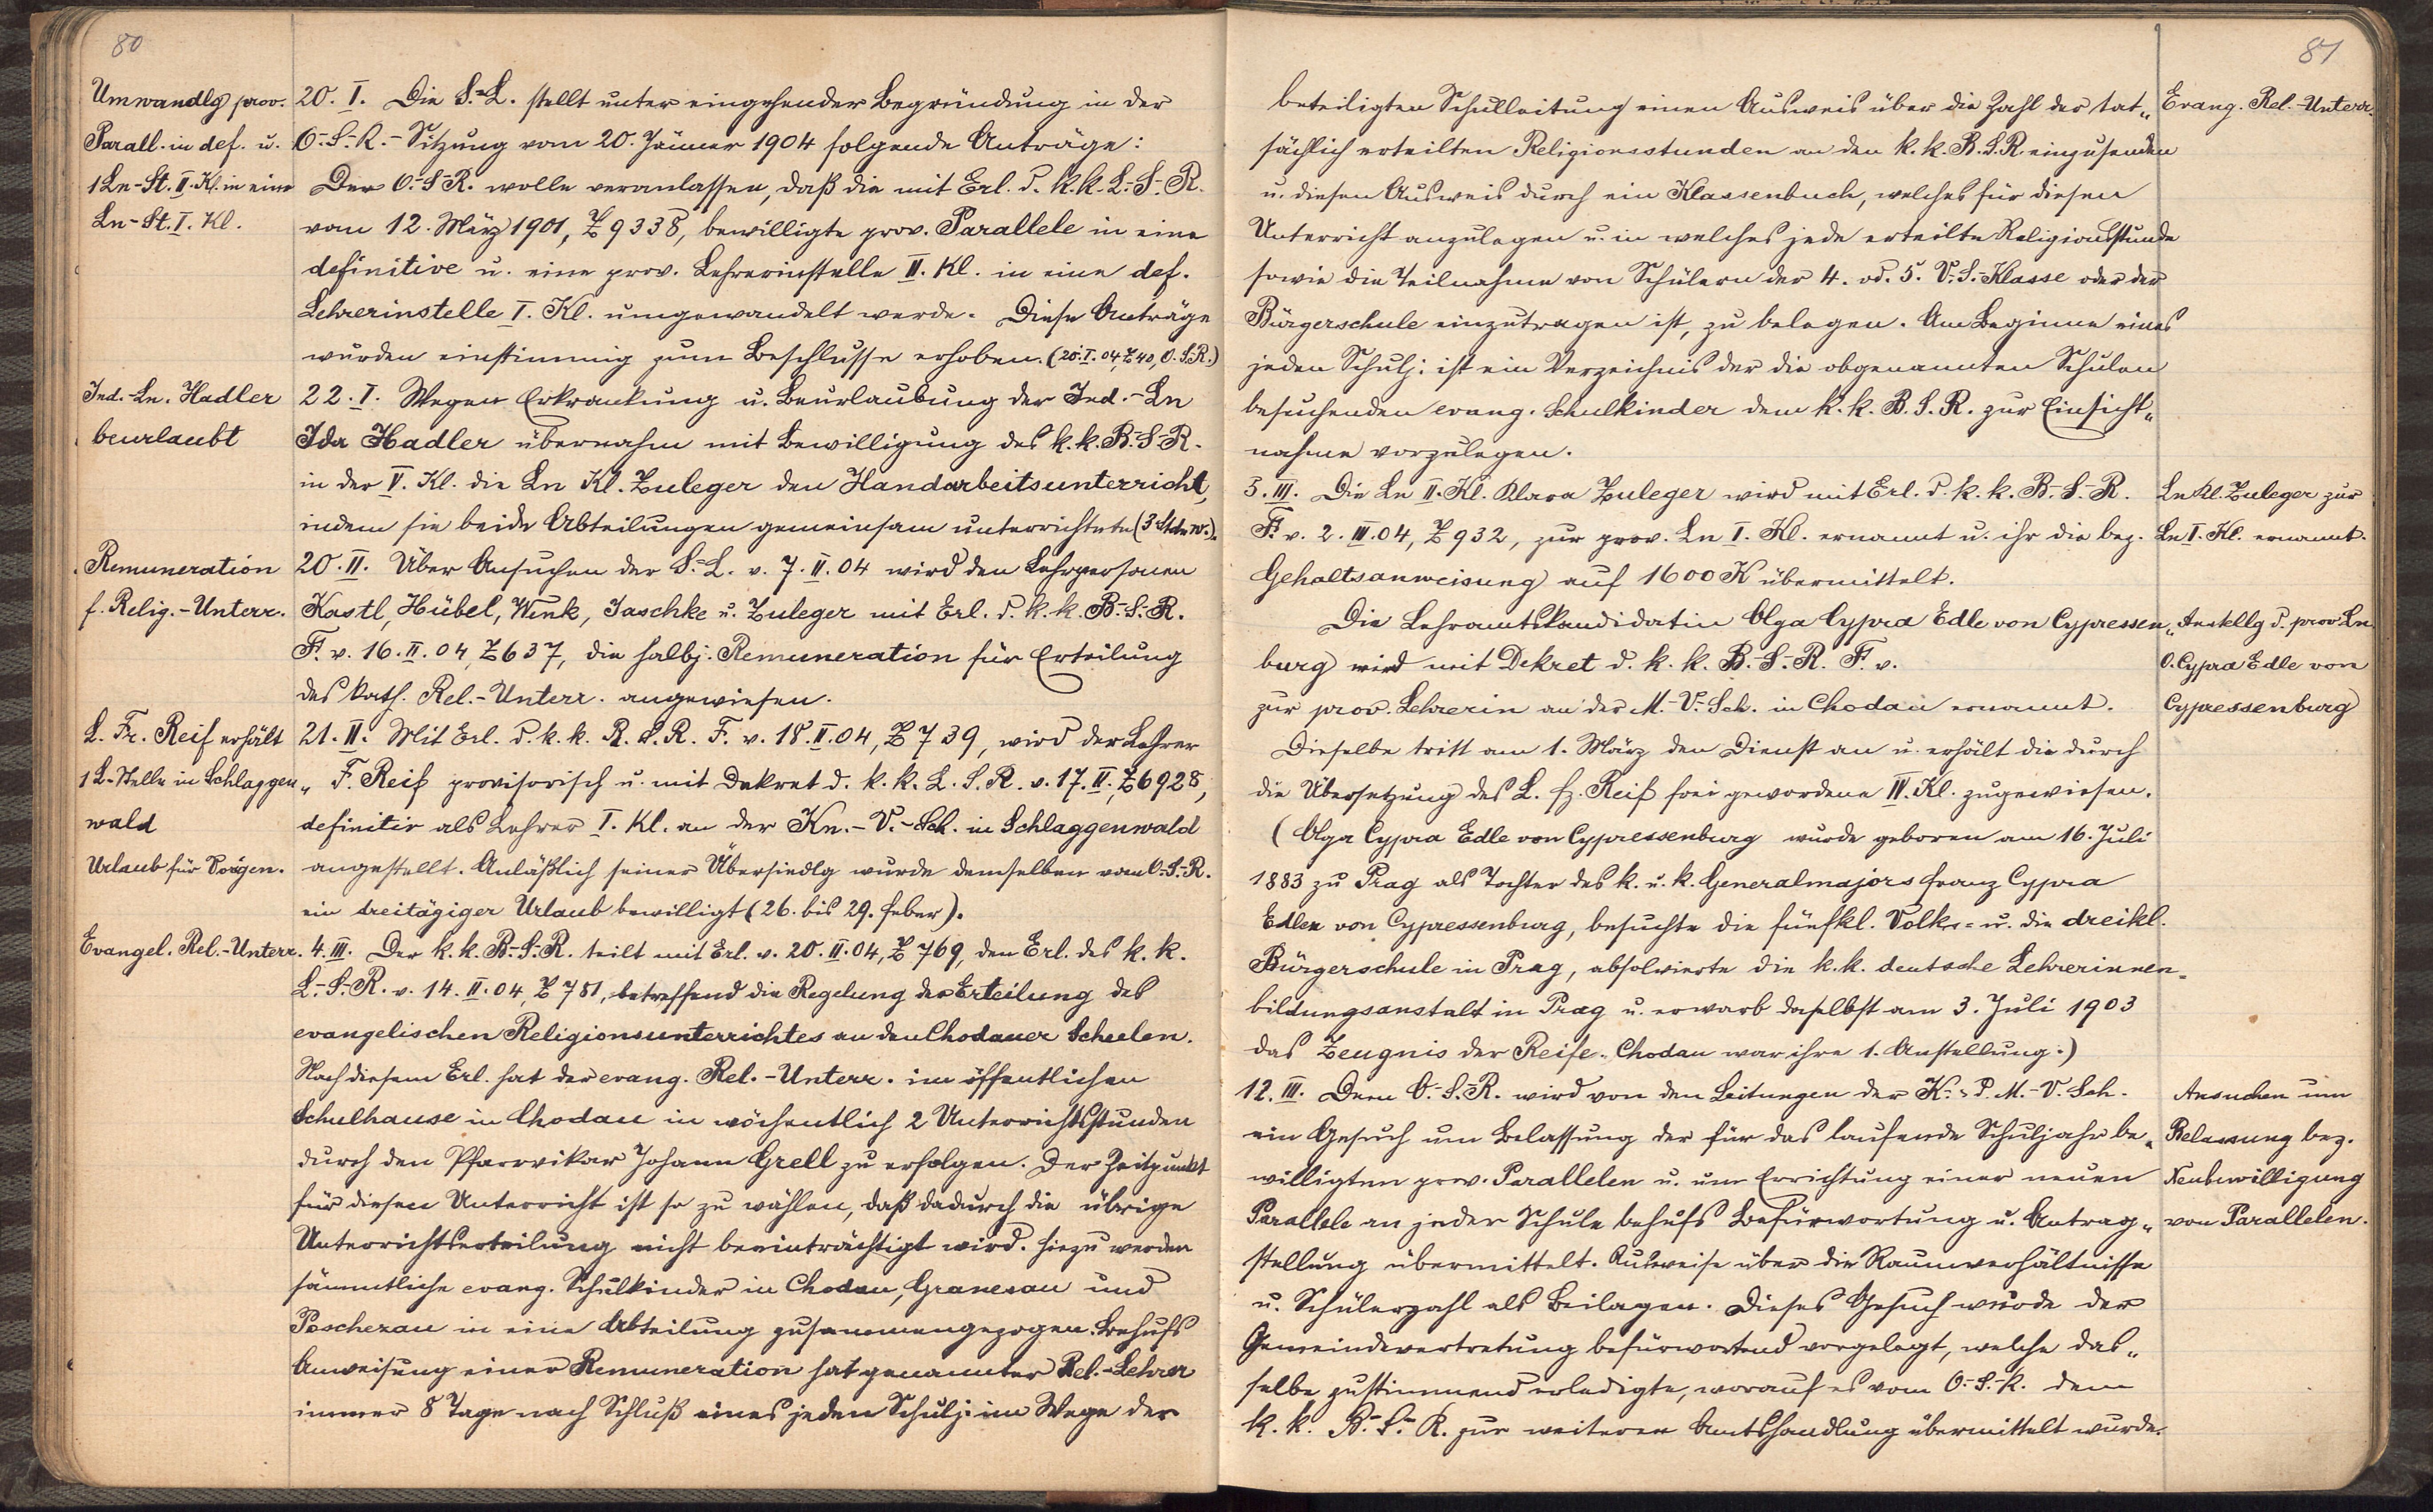 80
Umwandlg prov.
Parall. in def. u.
1 Ln-St. II. Kl. in eine
Ln-St. I. Kl.
20. I. Die S.-L. stellt unter eingehender Begründung in der
O.-S.-R.-Sitzung vom 20. Jänner 1904 folgende Anträge:
Der O.-S.-R. wolle veranlassen, daß die mit Erl. d. k. k. L.-S.-R.
vom 12. März 1901, Z 9338, bewilligte prov. Parallele in eine
definitive u. eine prov. Lehrerinstelle II. Kl. in eine def.
Lehrerinstelle I. Kl. umgewandelt werde. Diese Anträge
wurden einstimmig zum Beschlusse erhoben. (20. I. 04, Z 40, O.S.R.)
Ind.-Ln. Hadler
beurlaubt
22. I. Wegen Erkrankung u. Beurlaubung der Ind.-Ln
Ida Hadler übernahm mit Bewilligung des k. k. B.-S.-R.
in der V. Kl. die Ln Kl. Zuleger den Handarbeitsunterricht,
indem sie beide Abteilungen gemeinsam unterrichtete (3 Stdn w.).
Remuneration
f. Relig.-Unterr.
20. II. Über Ansuchen der S.-L. v. 7. II. 04 wird den Lehrpersonen
Kastl, Hübel, Wink, Jaschke u. Zuleger mit Erl. d. k. k. B.-S.-R.
F. v. 16. II. 04, Z 637, die halbj. Remuneration für Erteilung
des kath. Rel.-Unterr. angewiesen.
L. Fr. Reif erhält
1 L-Stelle in Schlaggen„
wald
Urlaub für Vorigen.
21. II. Mit Erl. d. k. k. B. S. R. F. v. 18. II. 04, Z 739, wird der Lehrer
F. Reif provisorisch u. mit Dekret d. k. k. L. S. R. v. 17. II., Z 6928,
definitiv als Lehrer I. Kl. an der Kn.-V.-Sch. in Schlaggenwald
angestellt. Anläßlich seiner Übersiedlg wurde demselben vom O.-S.-R.
ein dreitägiger Urlaub bewilligt (26. bis 29. Feber).
Evangel. Rel.-Unterr.
4. III. Der k. k. B.-S.-R. teilt mit Erl. v. 20. II. 04, Z 769, den Erl. des k. k.
L.-S.-R. v. 14. II. 04, Z 781, betreffend die Regelung der Erteilung des
evangelischen Religionsunterrichtes an den Chodauer Schulen.
Nach diesem Erl. hat der evang. Rel.-Unterr. im öffentlichen
Schulhause in Chodau in wöchentlich 2 Unterrichtsstunden
durch den Pfarrvikar Johann Grell zu erfolgen. Der Zeitpunkt
für diesen Unterricht ist so zu wählen, daß dadurch die übrige
Unterrichtserteilung nicht beeinträchtigt wird. Hiezu werden
sämmtliche evang. Schulkinder in Chodau, Granesau und
Poschezau in eine Abteilung zusammengezogen. Behufs
Anweisung einer Remuneration hat genannter Rel.-Lehrer
immer 8 Tage nach Schluß eines jeden Schulj. im Wege der
81
beteiligten Schulleitung einen Ausweis über die Zahl der tat„
sächlich erteilten Religionsstunden an den k. k. B. S. R. einzusenden
u. diesen Ausweis durch ein Klassenbuch, welches für diesen
Unterricht anzulegen u. in welches jede erteilte Religionsstunde
sowie die Teilnahme von Schülern der 4. od. 5. V.-S.-Klasse oder der
Bürgerschule einzutragen ist, zu belegen. Am Beginne eines
jeden Schulj. ist ein Verzeichnis der die obgenannten Schulen
besuchenden evang. Schulkinder dem k. k. B. S. R. zur Einsicht„
nahme vorzulegen.
Evang. Rel.-Unterr.
3. III. Die Ln II. Kl. Klara Zuleger wird mit Erl. d. k. k. B.-S.-R.
F. v. 2. III. 04, Z 932, zur prov. Ln I. Kl. ernannt u. ihr die bez.
Gehaltsanweisung auf 1600 K übermittelt.
Ln Kl. Zuleger zur
Ln I. Kl. ernannt.
Die Lehramtskandidatin Olga Cypra Edle von Cypressen„
burg wird mit Dekret d. k. k. B.-S.-R. F. v.
zur prov. Lehrerin an der M.-V.-Sch. in Chodau ernannt.
Anstellg d. prov. Ln
O. Cypra Edle von
Cypressenburg
Dieselbe tritt am 1. März den Dienst an u. erhält die durch
die Übersetzung des L. Fz. Reif frei gewordene III. Kl. zugewiesen.
(Olga Cypra Edle von Cypressenburg wurde geboren am 16. Juli
1883 zu Prag als Tochter des k. u. k. Generalmajors Franz Cypra
Edlen von Cypressenburg, besuchte die fünfkl. Volks- u. die dreikl.
Bürgerschule in Prag, absolvierte die k. k. deutsche Lehrerinnen-
bildungsanstalt in Prag u. erwarb daselbst am 3. Juli 1903
das Zeugnis der Reife. Chodau war ihre 1. Anstellung.)
12. III. Dem O.-S.-R. wird von den Leitungen der K.- u. M.-V.-Sch.
ein Gesuch um Belassung der für das laufende Schuljahr be„
willigten prov. Parallelen u. um Errichtung einer neuen
Parallele an jeder Schule behufs Befürwortung u. Antrag„
stellung übermittelt. Ausweise über die Raumverhältnisse
u. Schülerzahl als Beilagen. Dieses Gesuch wurde der
Gemeindevertretung befürwortend vorgelegt, welche das„
selbe zustimmend erledigte, worauf es vom O.-S.-R. dem
k. k. B.-S.-R. zur weiteren Amtshandlung übermittelt wurde.
Ansuchen um
Belassung bez.
Neubewilligung
von Parallelen.